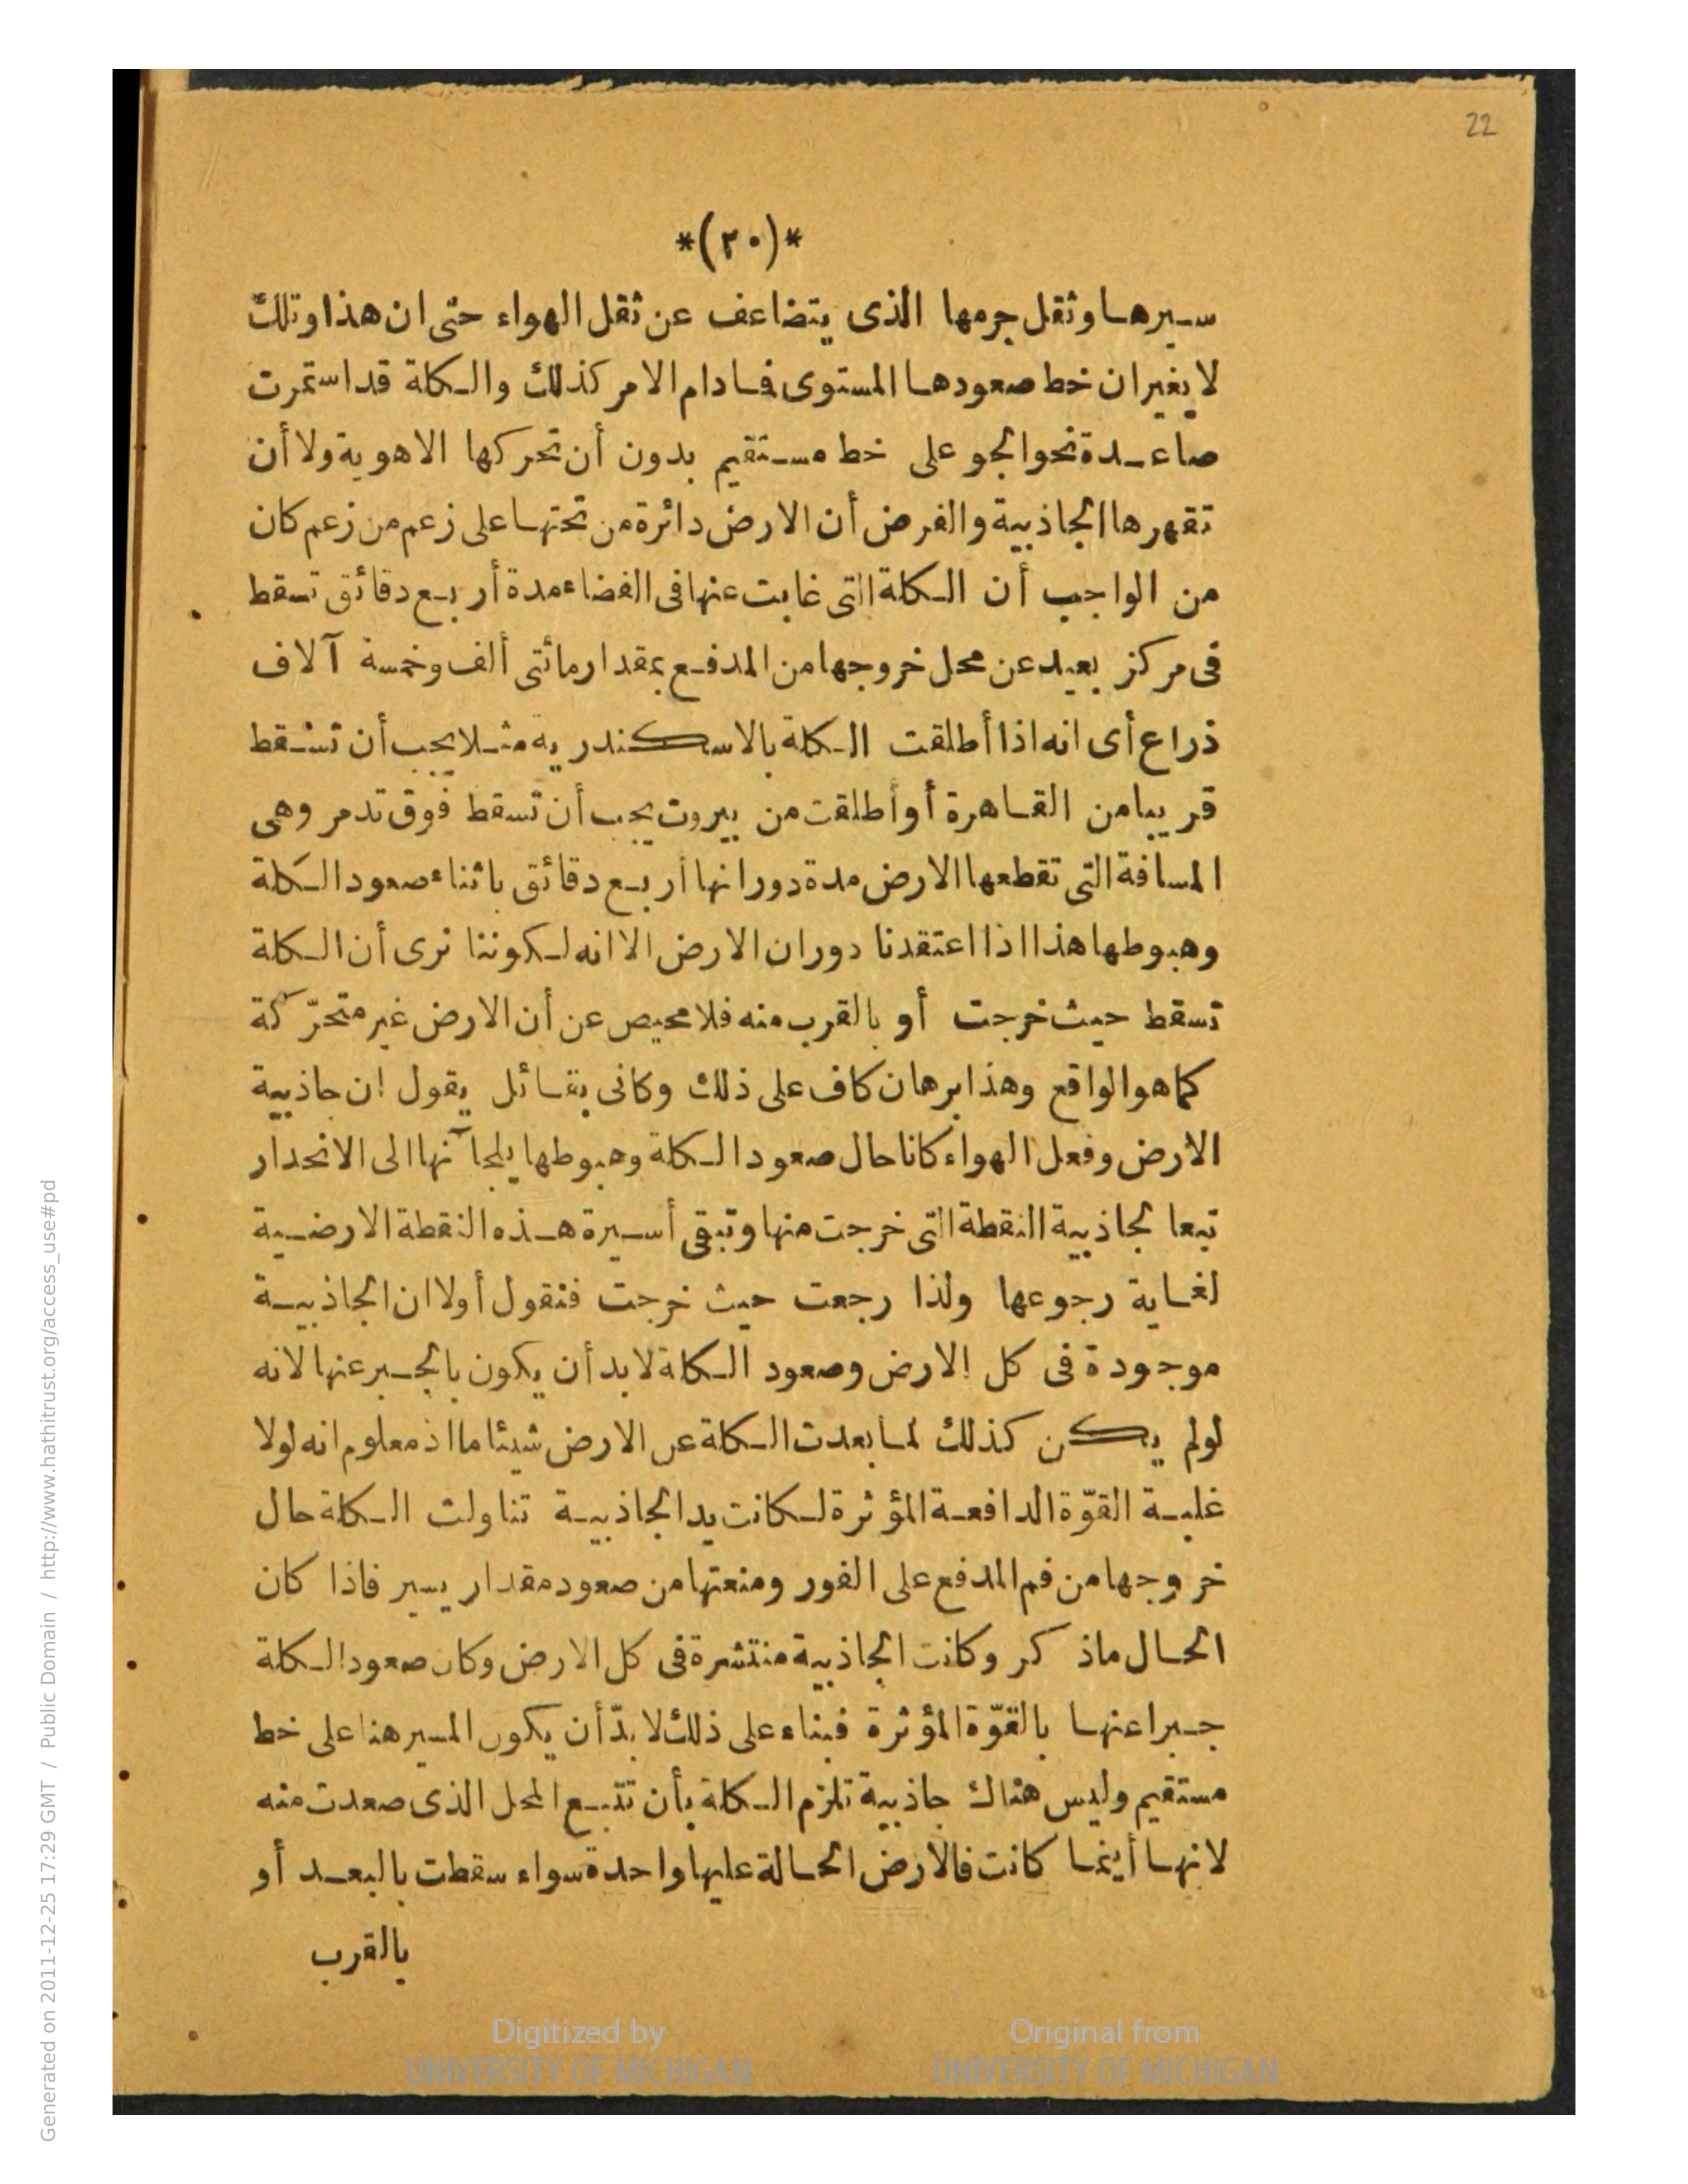 22
*(٢٠)*
سيرها وثقل جرمها الذى يتضاعف عن ثقل الهواء حتى ان هذا وتلك
لا يغيران خط صعودها المستوى فادام الامر كذلك والكلة قد استمرت
صاعدة نحو الجو على خط مستقيم بدون أن تحركها الاهوية ولا أن
تقهرها الجاذبية والفرض أن الارض دائرة من تحتها على زعم من زعم كان
من الواجب أن الكلة التى غابت عنها فى الفضاء مدة أربع دقائق تسقط
فى مركز بعيد عن محل خروجها من المدفع بمقدار مائتى ألف وخمسة آلاف
ذراع أى انه اذا أطلقت الكلة بالاسكندرية مثلا يجب أن تسقط
قريبا من القاهرة أو أطلقت من بيروت يجب أن تسقط فوق تدمر وهى
المسافة التى تقطعها الارض مدة دورانها أربع دقائق باثناء صعود الكلة
وهبوطها هذا اذا اعتقدنا دوران الارض الا انه لكوننا نرى أن الكلة
تسقط حيث خرجت أو بالقرب منه فلا محيص عن أن الارض غير متحرّكة
كما هو الواقع وهذا برهان كاف على ذلك وكانى بقائل يقول ان جاذبية
الارض وفعل الهواء كانا حال صعود الكلة وهبوطها يلجآنها الى الانحدار
تبعا لجاذبية النقطة التى خرجت منها وتبقى أسيرة هذه النقطة الارضية
لغاية رجوعها ولذا رجعت حيث خرجت فنقول أولا ان الجاذبية
موجودة فى كل الارض وصعود الكلة لابد أن يكون بالجبر عنها لانه
لولم يكن كذلك لما بعدت الكلة عن الارض شيئا ما اذ معلوم انه لولا
غلبة القوّة الدافعة المؤثرة لكانت يد الجاذبية تناولت الكلة حال
خروجها من فم المدفع على الفور ومنعتها من صعود مقدار يسير فاذا كان
الحال ماذكر وكانت الجاذبية منتشرة فى كل الارض وكان صعود الكلة
جبرا عنها بالقوّة المؤثرة فبناء على ذلك لابدّ أن يكون المسير هنا على خط
مستقيم وليس هناك جاذبية تلزم الكلة بأن تتبع المحل الذى صعدت منه
لانها أينما كانت فالارض الحالة عليها واحدة سواء سقطت بالبعد أو
بالقرب
Digitized by
UNIVERSITY OF MICHIGAN
Original from
UNIVERSITY OF MICHIGAN
Generated on 2011-12-25 17:29 GMT / Public Domain / http://www.hathitrust.org/access_use#pd